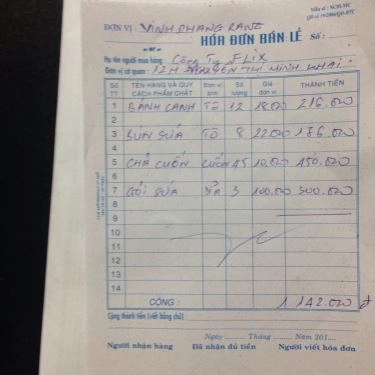 Mẫu số : NCH-MC
QĐ số 1928BộQĐ-BTC
ĐƠN VỊ : VINH PHANG RANG
HÓA ĐƠN BÁN LẺ Số :
Họ tên người mua hàng : Công Ty FLIX
Đơn vị cơ quan : 12M NGUYỄN THỊ MINH KHAI
Số TT TÊN HÀNG VÀ QUY CÁCH PHẨM CHẤT Đơn vị tính Số lượng Giá đơn vị THÀNH TIỀN
1 BÁNH CANH TÔ 12 18.000 216.000
2
3 BÚN SỨA TÔ 8 22.000 186.000
4
5 CHẢ CUỐN CUỐN 45 10.000 450.000
6
7 GỎI SỨA DĨA 3 100.000 300.000
8
9
10
11
12
13
14
CỘNG : 1.142.000 đ
Cộng thành tiền (viết bằng chữ) :
Ngày Tháng Năm 201
Người nhận hàng Đã nhận đủ tiền Người viết hóa đơn